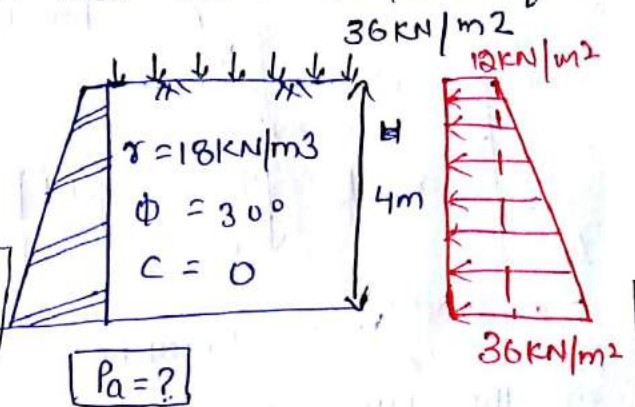 36KN/m2
12KN/m²
γ=18KN/m3
H
Φ = 30°
4m
C = 0
36KN/m²
Pa=?